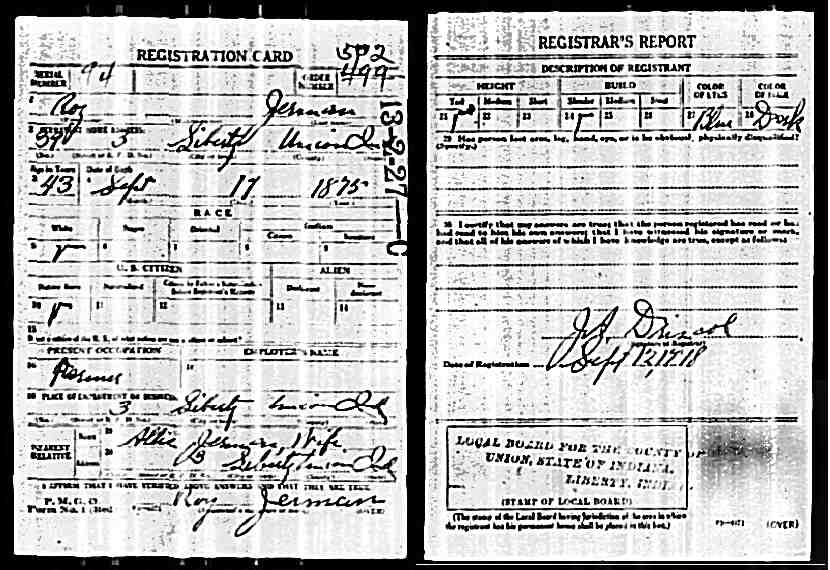 REGISTRATION CARD
SERIAL NUMBER 94
ORDER NUMBER 499
1 Roy Jerman
3 Liberty Union Ind
Age in Years Date of Birth
43 Sept 17 1875
RACE
White Negro Oriental Indian
Citizen
5 6 7 8 9
U. S. CITIZEN ALIEN
Native Born Naturalized Declarant
10 11 12 13 14
15
PRESENT OCCUPATION EMPLOYER'S NAME
16 Farmer 17
PLACE OF EMPLOYMENT OR BUSINESS
3 Liberty Union Ind
NEAREST RELATIVE
Name Allie Jerman, Wife
3 Liberty Union Ind
I AFFIRM THAT I HAVE VERIFIED ABOVE ANSWERS AND THAT THEY ARE TRUE
P. M. G. O.
Form No. 1 (Red) Roy Jerman (OVER)
13-2-27-C
REGISTRAR'S REPORT
DESCRIPTION OF REGISTRANT
HEIGHT BUILD COLOR OF EYES COLOR OF HAIR
Tall Medium Short Slender Medium Stout
21 22 23 24 25 26 27 Blue 28 Dark
29 Has person lost arm, leg, hand, eye, or is he obviously physically disqualified?
(Specify.)
30 I certify that my answers are true; that the person registered has read or has
had read to him his own answers; that I have witnessed his signature or mark,
and that all of his answers of which I have knowledge are true, except as follows:
J. A. Driscol
(Signature of Registrar)
Date of Registration Sept 12, 1918
LOCAL BOARD FOR THE COUNTY OF
UNION, STATE OF INDIANA,
LIBERTY, INDIANA.
(STAMP OF LOCAL BOARD)
(The stamp of the Local Board having jurisdiction of the area in which
the registrant has his permanent home shall be placed in this box.)
(OVER)